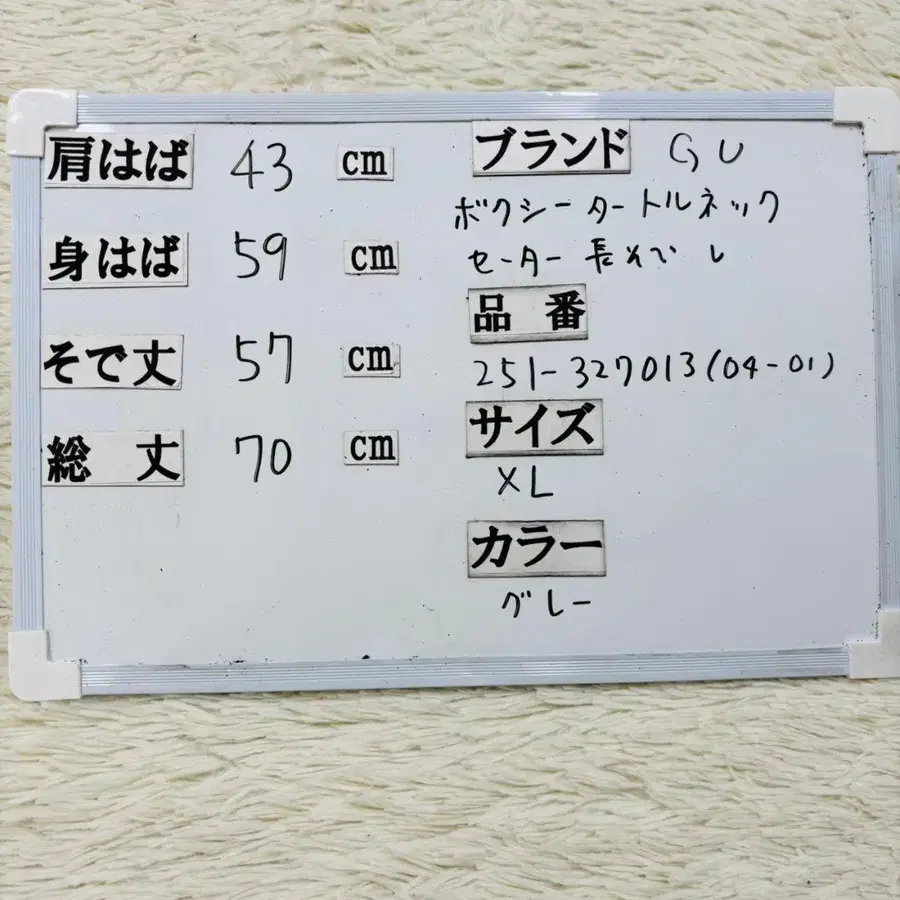 肩はば 43 cm
身はば 59 cm
そで丈 57 cm
総 丈 70 cm
ブランド GU
ボクシータートルネック
セーター 長そで L
品 番
251-327013(04-01)
サイズ
XL
カラー
グレー